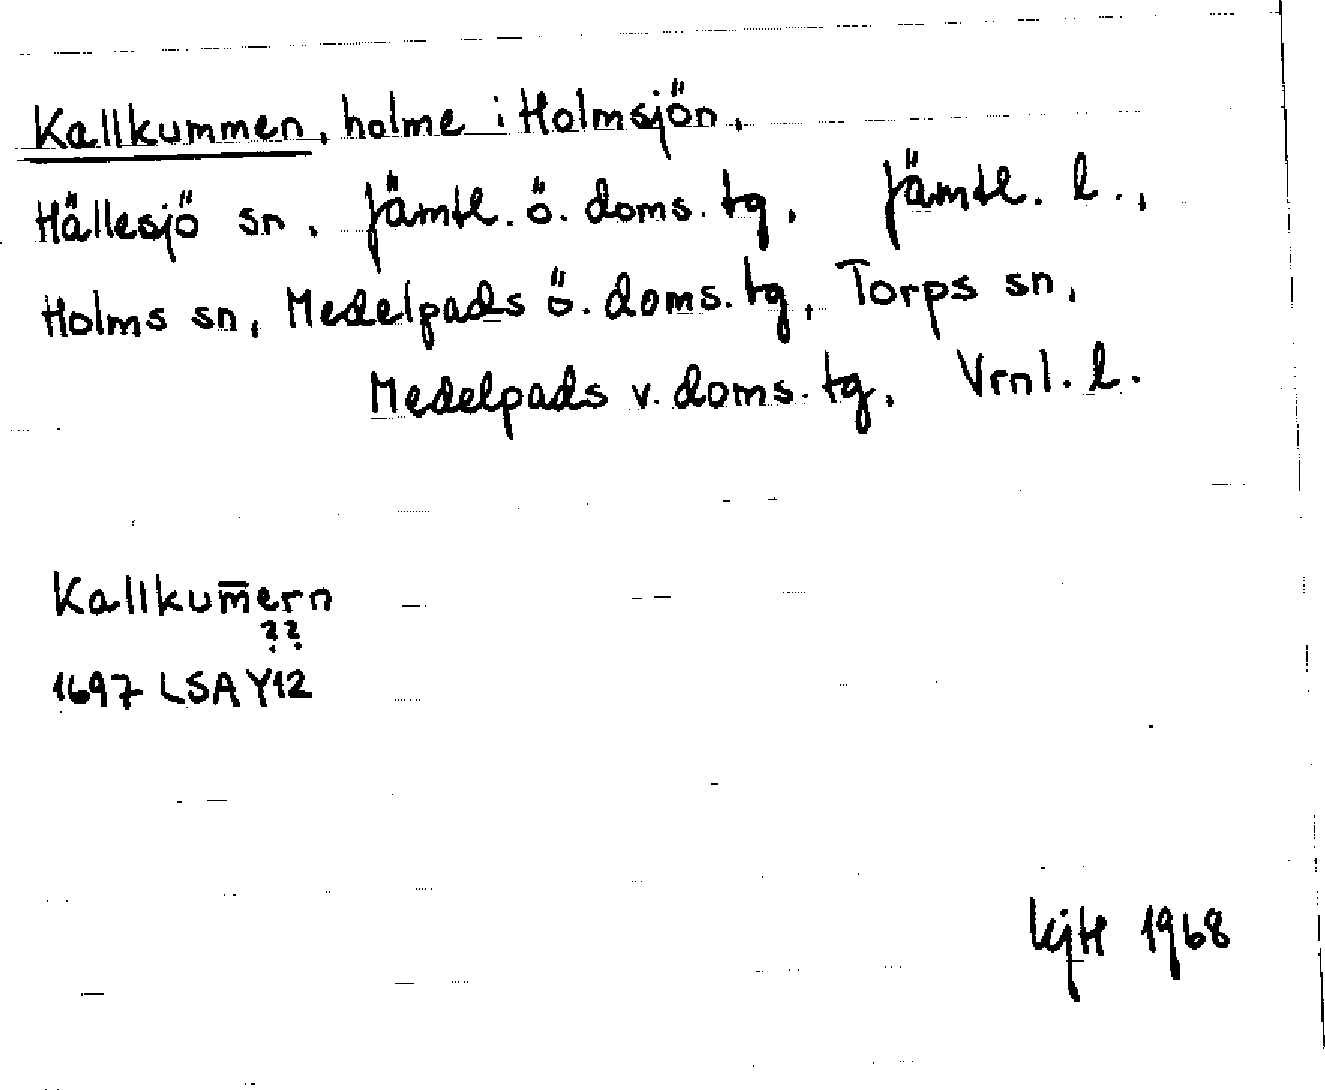 Kallkummen, holme i Holmsjön,
Hällesjö sn, Jämtl. ö. doms. tg, Jämtl. l.,
Holms sn, Medelpads ö. doms. tg, Torps sn,
Medelpads v. doms. tg, Vrnl. l.
Kallkum̅ern
??
1697 LSA Y12
KjH 1968